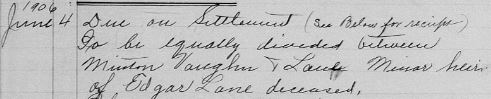 1906
June 4 Due on Settlement (See Below for receipt)
To be equally divided between
Minton Vaughn & Lane Minor heir
of Edgar Lane deceased,